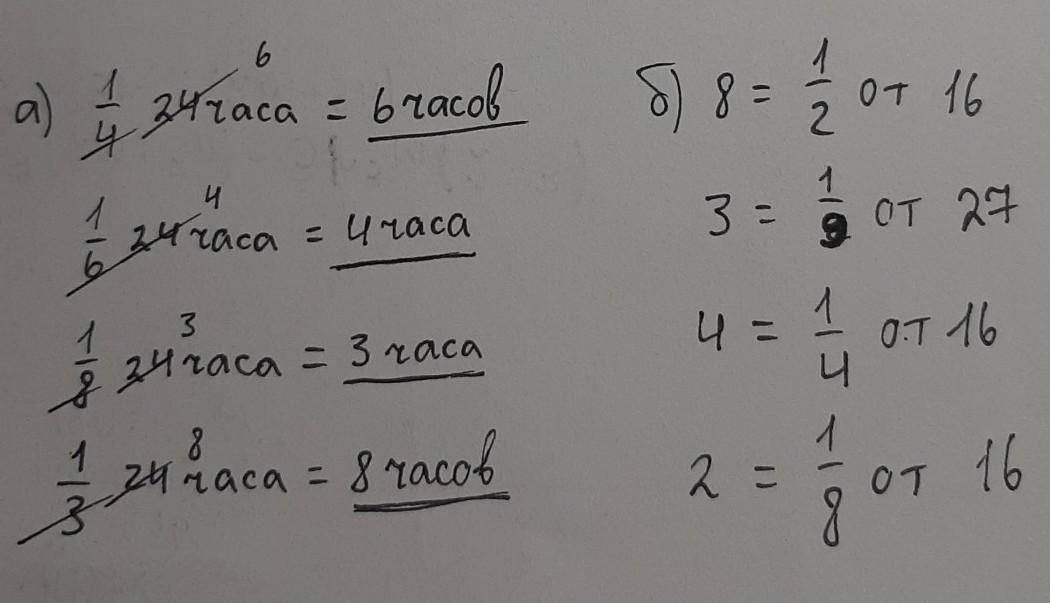 а) 1/4 24 часа = 6 часов
6
1/6 24 часа = 4 часа
4
1/8 24 часа = 3 часа
3
1/3 24 часа = 8 часов
8
б) 8 = 1/2 от 16
3 = 1/9 от 27
4 = 1/4 от 16
2 = 1/8 от 16